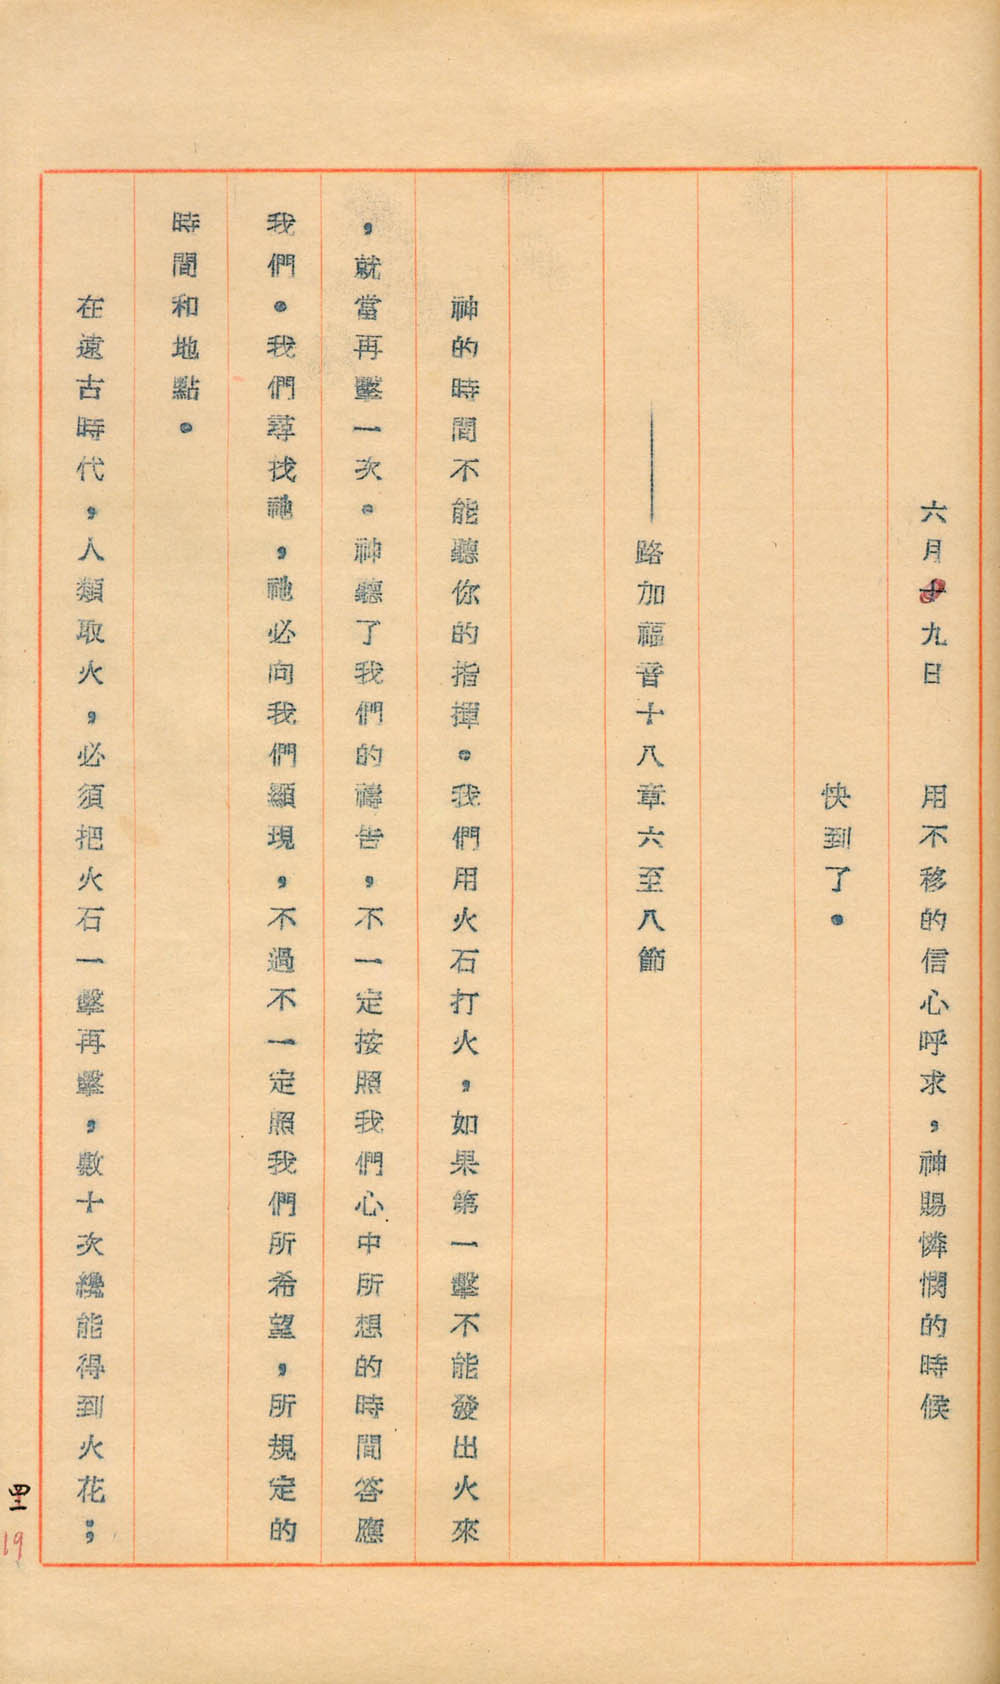 六月十九日　用不移的信心呼求，神賜憐憫的時候
快到了。
——路加福音十八章六至八節
神的時間不能聽你的指揮。我們用火石打火，如果第一擊不能發出火來
，就當再擊一次。神聽了我們的禱告，不一定按照我們心中所想的時間答應
我們。我們尋找祂，祂必向我們顯現，不過不一定照我們所希望，所規定的
時間和地點。
在遠古時代，人類取火，必須把火石一擊再擊，數十次纔能得到火花；
19